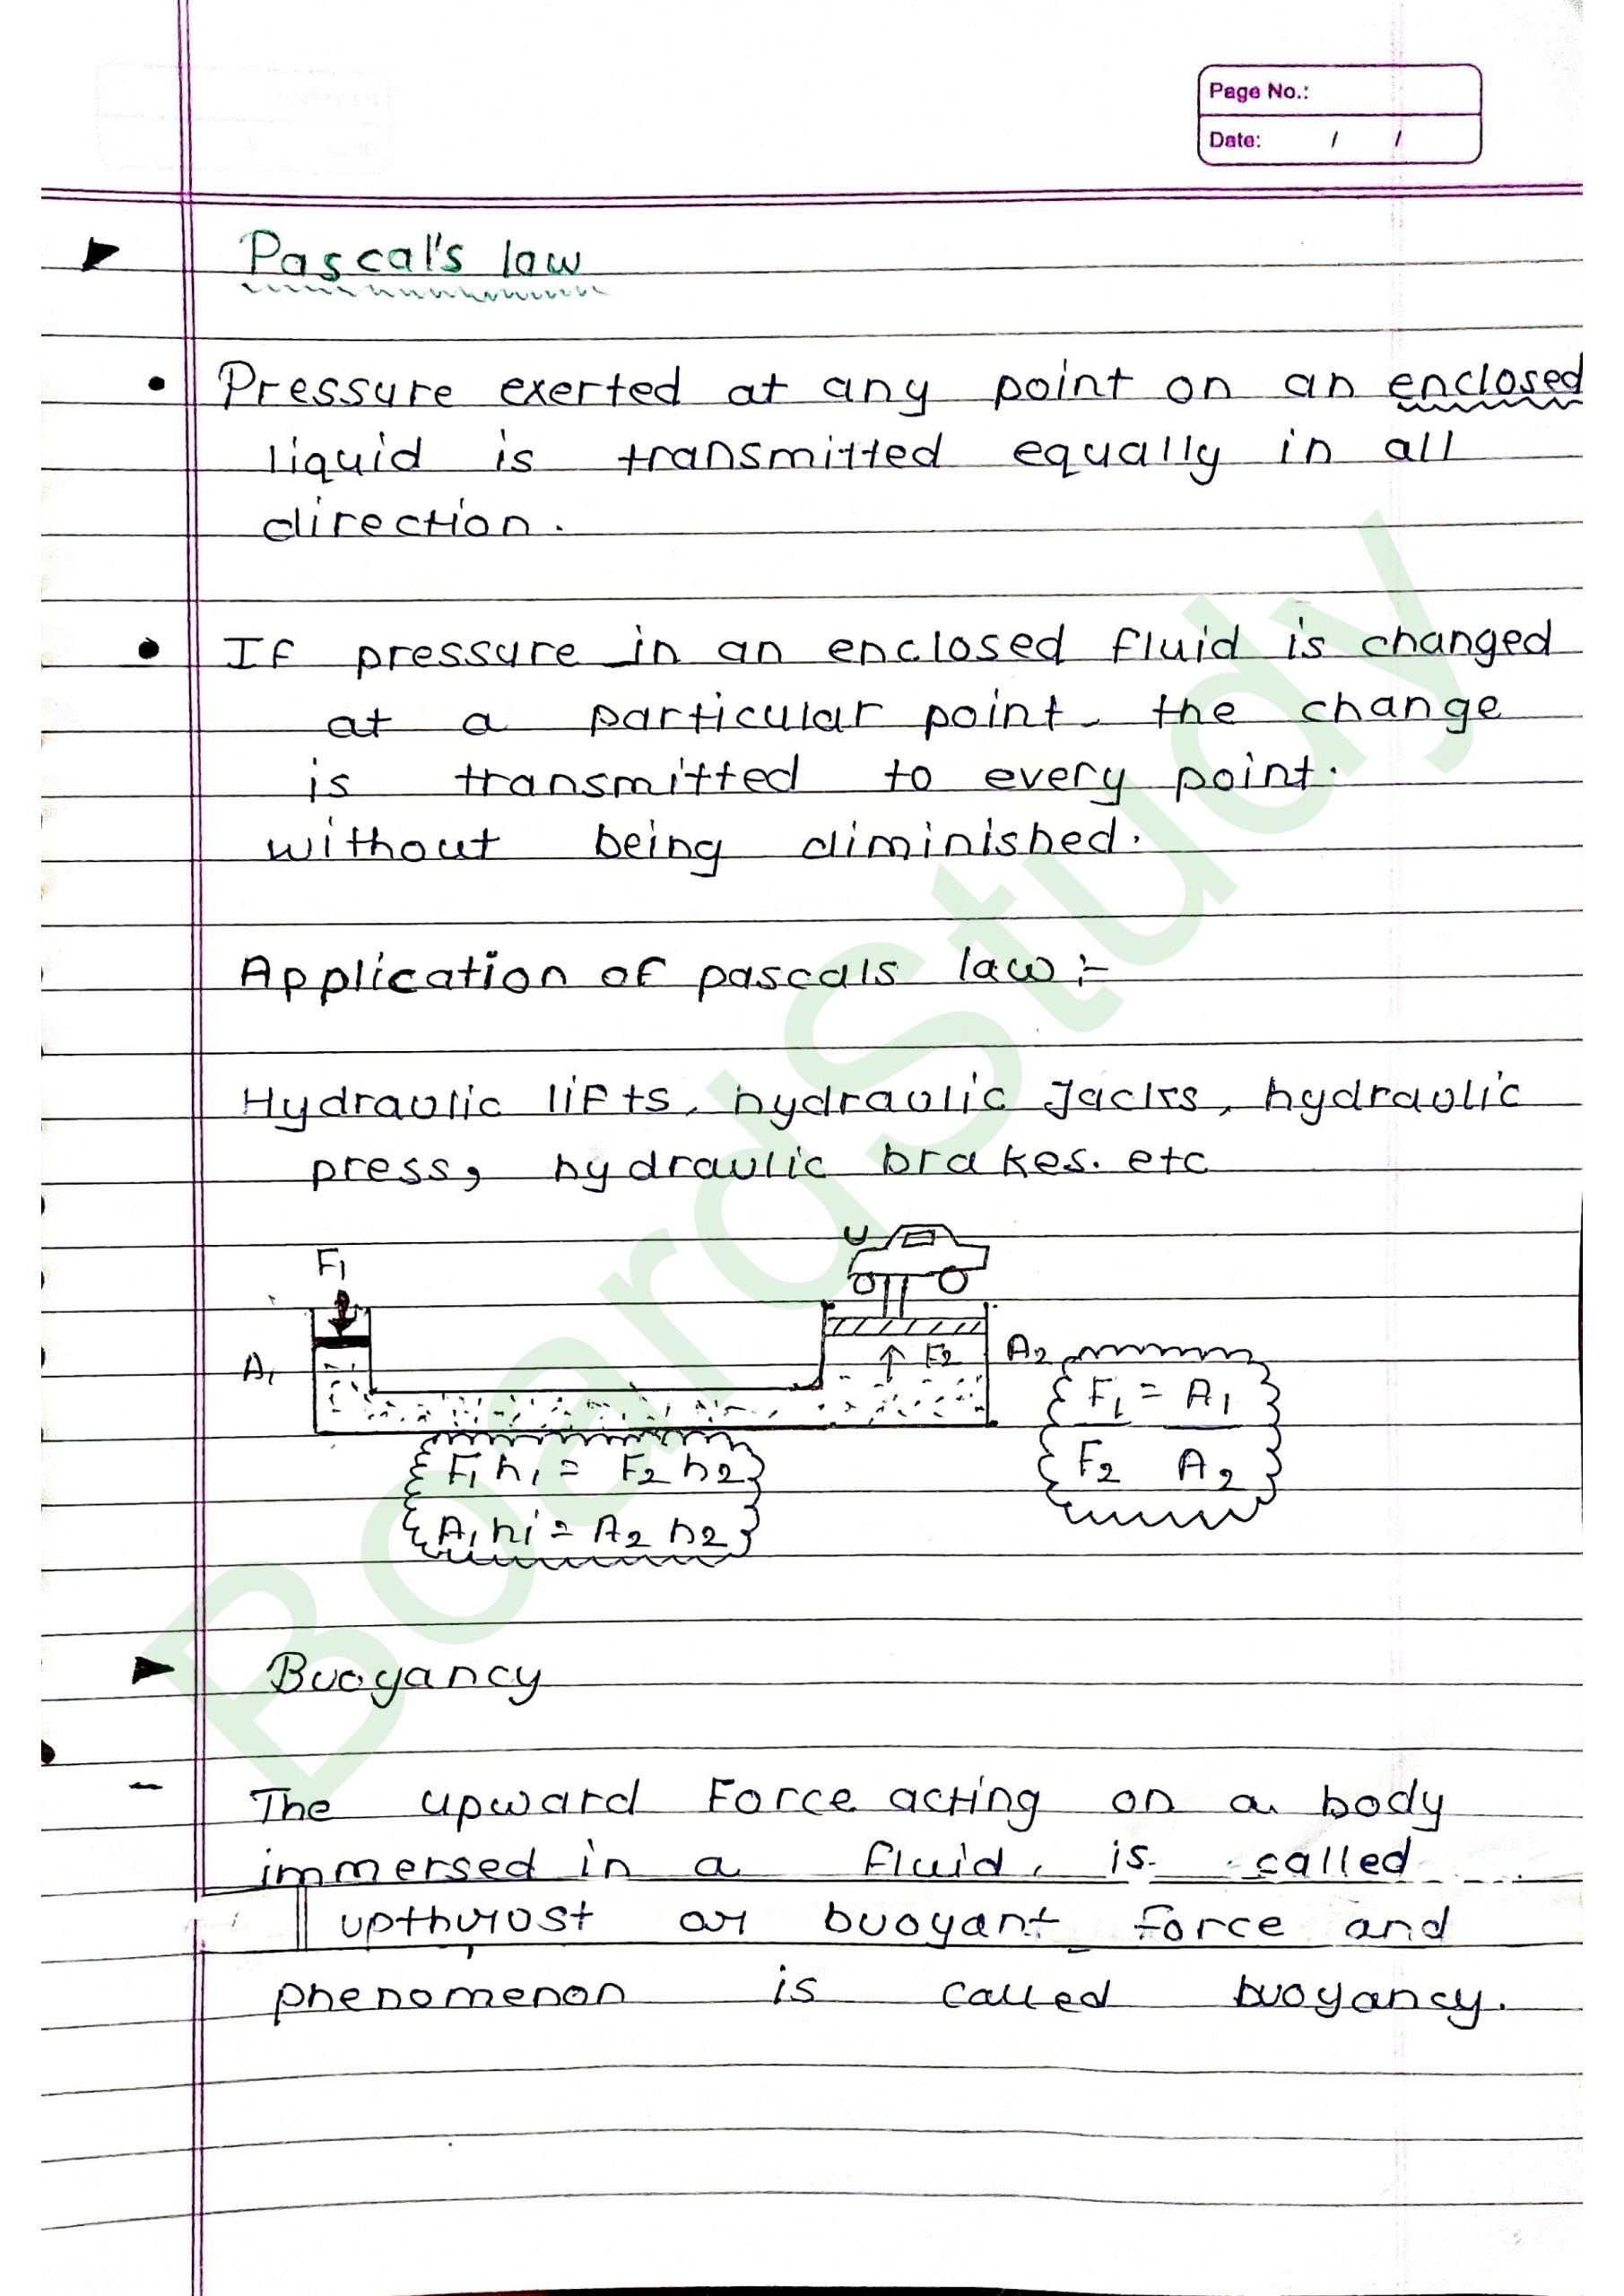 Page No.:
Date: / /
Pascal's law
• Pressure exerted at any point on an enclosed
liquid is transmitted equally in all
direction.
• If pressure in an enclosed fluid is changed
at a particular point, the change
is transmitted to every point.
without being diminished.
Application of pascals law :-
Hydraulic lifts, hydraulic Jacks, hydraulic
press, hydraulic brakes. etc
F1
A1
F2
A2
F1 = A1
F2 A2
F1 h1 = F2 h2
A1 h1 = A2 h2
Buoyancy
- The upward Force acting on a body
immersed in a fluid, is called
upthrust or buoyant force and
phenomenon is called buoyancy.
BoardStudy